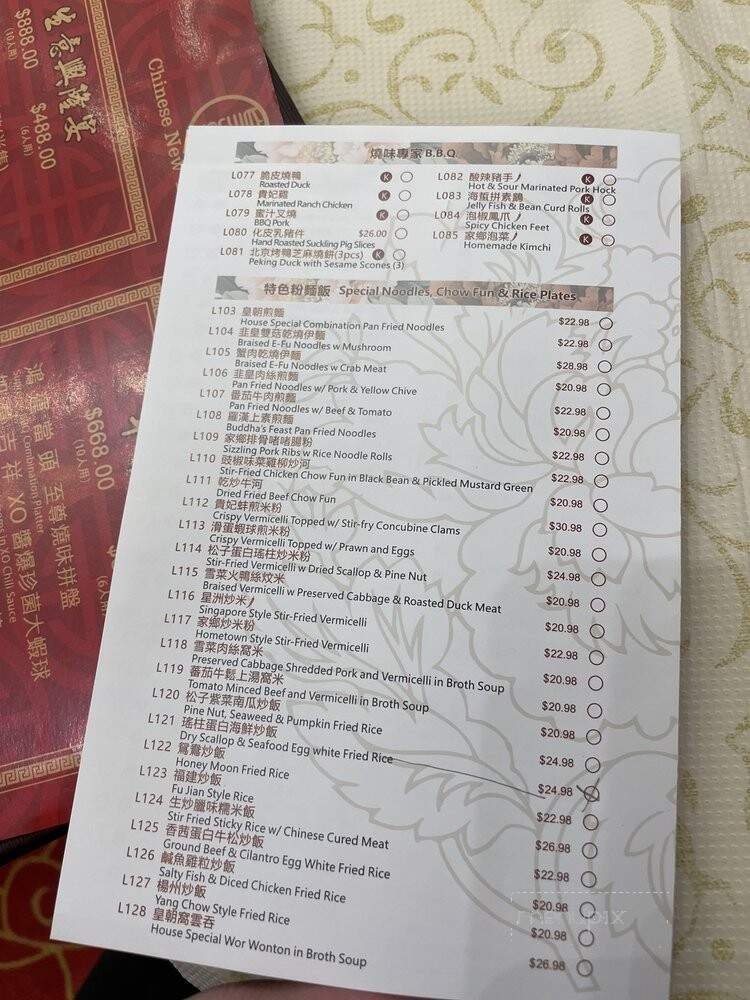 生意興隆宴
$888.00
(10人用)
$488.00
(6人用)
Chinese New
$668.00
(10人用)
鴻運當頭 至尊燒味拼盤
Combination Platter
XO醬爆珍菌大蝦球
in XO Chili Sauce
燒味專家 B.B.Q.
L077 脆皮燒鴨 K
Roasted Duck
L078 貴妃雞 K
Marinated Ranch Chicken
L079 蜜汁叉燒 K
BBQ Pork
L080 化皮乳豬件 $26.00
Hand Roasted Suckling Pig Slices
L081 北京烤鴨芝麻燒餅(3pcs) K
Peking Duck with Sesame Scones (3)
L082 酸辣豬手 K
Hot & Sour Marinated Pork Hock
L083 海蜇拼素鵝 K
Jelly Fish & Bean Curd Rolls
L084 泡椒鳳爪 K
Spicy Chicken Feet
L085 家鄉泡菜 K
Homemade Kimchi
特色粉麵飯 Special Noodles, Chow Fun & Rice Plates
L103 皇朝煎麵 $22.98
House Special Combination Pan Fried Noodles
L104 韭皇雙菇乾燒伊麵 $22.98
Braised E-Fu Noodles w Mushroom
L105 蟹肉乾燒伊麵 $28.98
Braised E-Fu Noodles w Crab Meat
L106 韭皇肉絲煎麵 $20.98
Pan Fried Noodles w/ Pork & Yellow Chive
L107 番茄牛肉煎麵 $22.98
Pan Fried Noodles w/ Beef & Tomato
L108 羅漢上素煎麵 $20.98
Buddha's Feast Pan Fried Noodles
L109 家鄉排骨啫啫腸粉 $22.98
Sizzling Pork Ribs w Rice Noodle Rolls
L110 豉椒味菜雞柳炒河 $22.98
Stir-Fried Chicken Chow Fun in Black Bean & Pickled Mustard Green
L111 乾炒牛河 $20.98
Dried Fried Beef Chow Fun
L112 貴妃蚌煎米粉 $30.98
Crispy Vermicelli Topped w/ Stir-fry Concubine Clams
L113 滑蛋蝦球煎米粉 $20.98
Crispy Vermicelli Topped w/ Prawn and Eggs
L114 松子蛋白瑤柱炒米粉 $24.98
Stir-Fried Vermicelli w Dried Scallop & Pine Nut
L115 雪菜火鴨絲炆米 $20.98
Braised Vermicelli w Preserved Cabbage & Roasted Duck Meat
L116 星洲炒米 $20.98
Singapore Style Stir-Fried Vermicelli
L117 家鄉炒米粉 $22.98
Hometown Style Stir-Fried Vermicelli
L118 雪菜肉絲窩米 $20.98
Preserved Cabbage Shredded Pork and Vermicelli in Broth Soup
L119 蕃茄牛鬆上湯窩米 $20.98
Tomato Minced Beef and Vermicelli in Broth Soup
L120 松子紫菜南瓜炒飯 $20.98
Pine Nut, Seaweed & Pumpkin Fried Rice
L121 瑤柱蛋白海鮮炒飯 $24.98
Dry Scallop & Seafood Egg white Fried Rice
L122 鴛鴦炒飯 $24.98
Honey Moon Fried Rice
L123 福建炒飯 $22.98
Fu Jian Style Rice
L124 生炒臘味糯米飯 $26.98
Stir Fried Sticky Rice w/ Chinese Cured Meat
L125 香茜蛋白牛松炒飯 $22.98
Ground Beef & Cilantro Egg White Fried Rice
L126 鹹魚雞粒炒飯 $20.98
Salty Fish & Diced Chicken Fried Rice
L127 楊州炒飯 $20.98
Yang Chow Style Fried Rice
L128 皇朝窩雲吞 $26.98
House Special Wor Wonton in Broth Soup